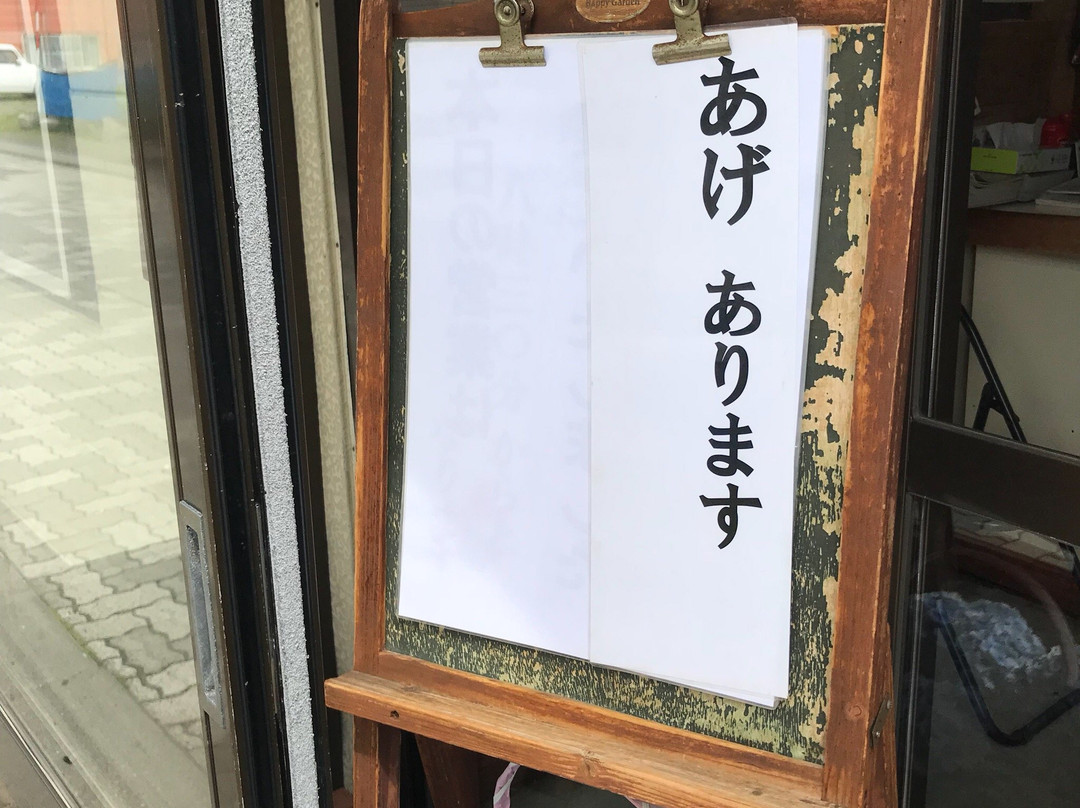 Happy Garden
あげ あります